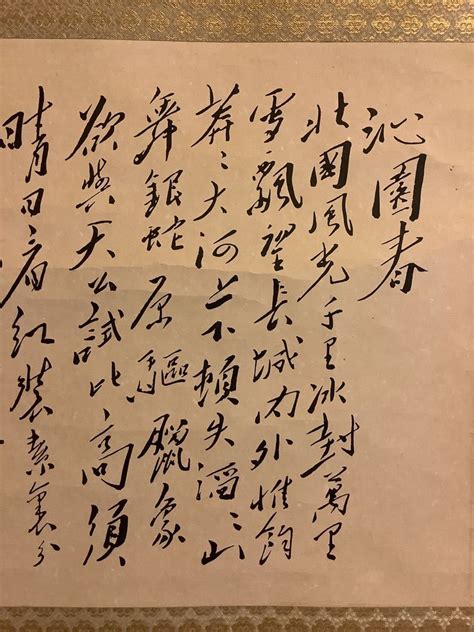 沁園春
北國風光千里冰封萬里
雪飄望長城内外惟餘
莽〻大河上下頓失滔〻山
舞銀蛇原驅臘象
欲與天公試比高須
晴日看紅裝素裹分